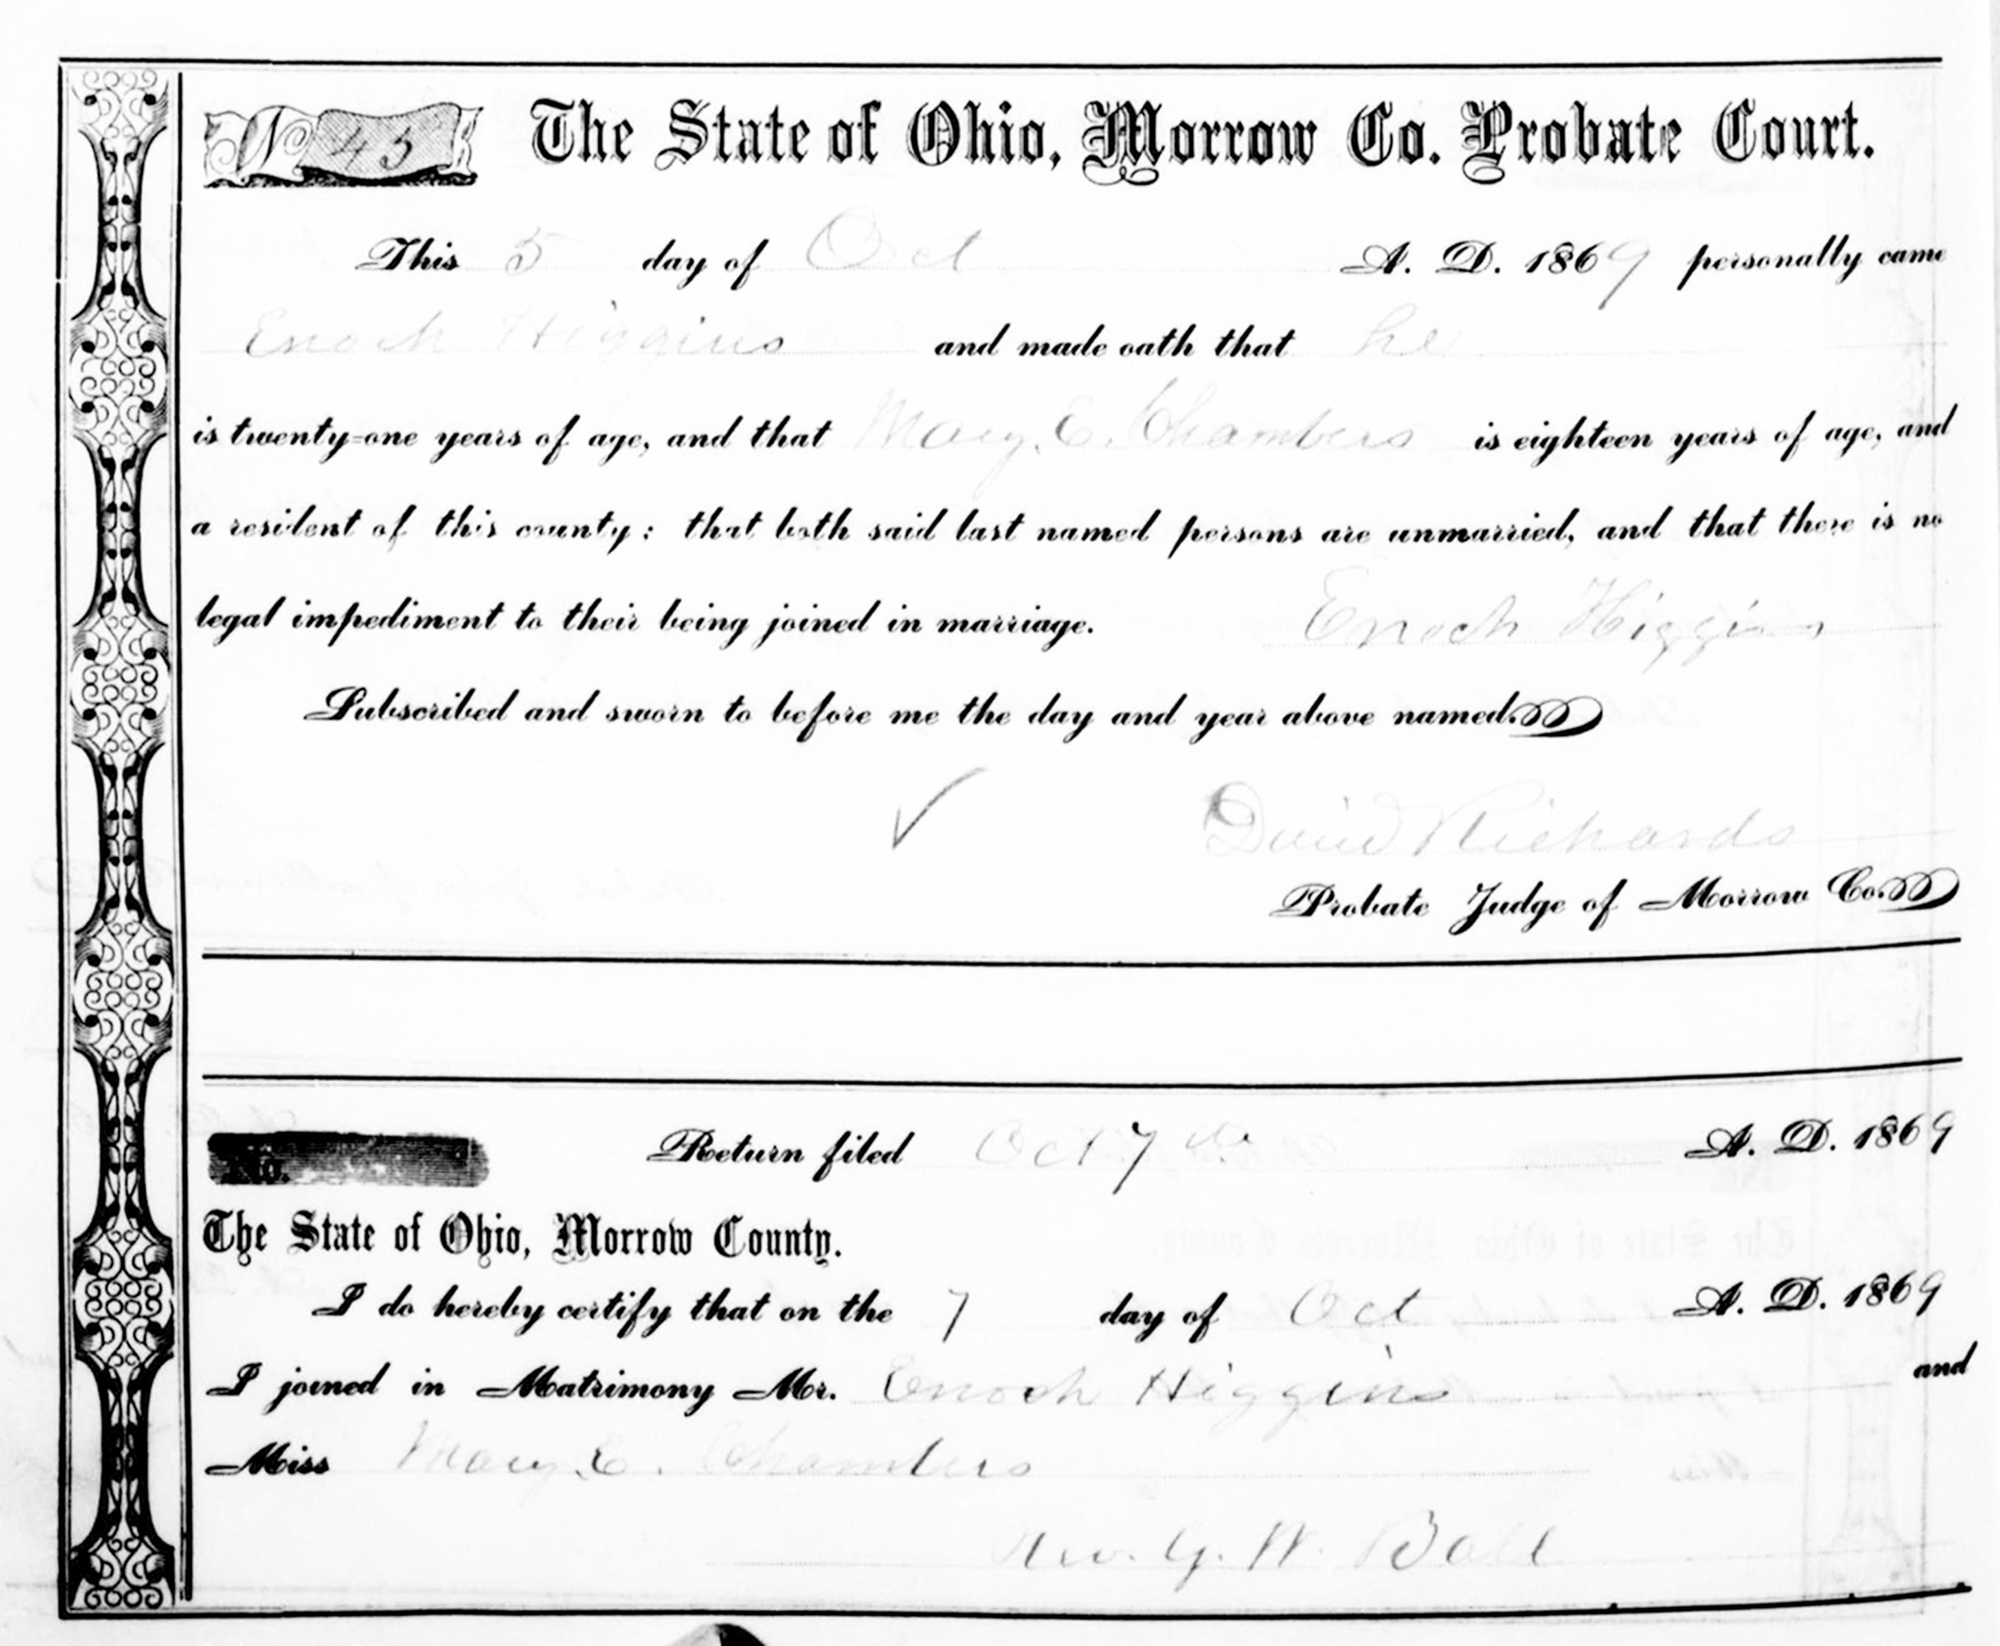 No 43 The State of Ohio, Morrow Co. Probate Court.
This 5 day of Oct A. D. 1869 personally came
Enoch Higgins and made oath that he
is twenty-one years of age, and that Mary. E. Chambers is eighteen years of age, and
a resident of this county: that both said last named persons are unmarried, and that there is no
legal impediment to their being joined in marriage. Enoch Higgins
Subscribed and sworn to before me the day and year above named.
David Richards
Probate Judge of Morrow Co.
No. Return filed Oct 7th A. D. 1869
The State of Ohio, Morrow County.
I do hereby certify that on the 7 day of Oct A. D. 1869
I joined in Matrimony Mr. Enoch Higgins and
Miss Mary. E. Chambers
Rev. G. W. Ball